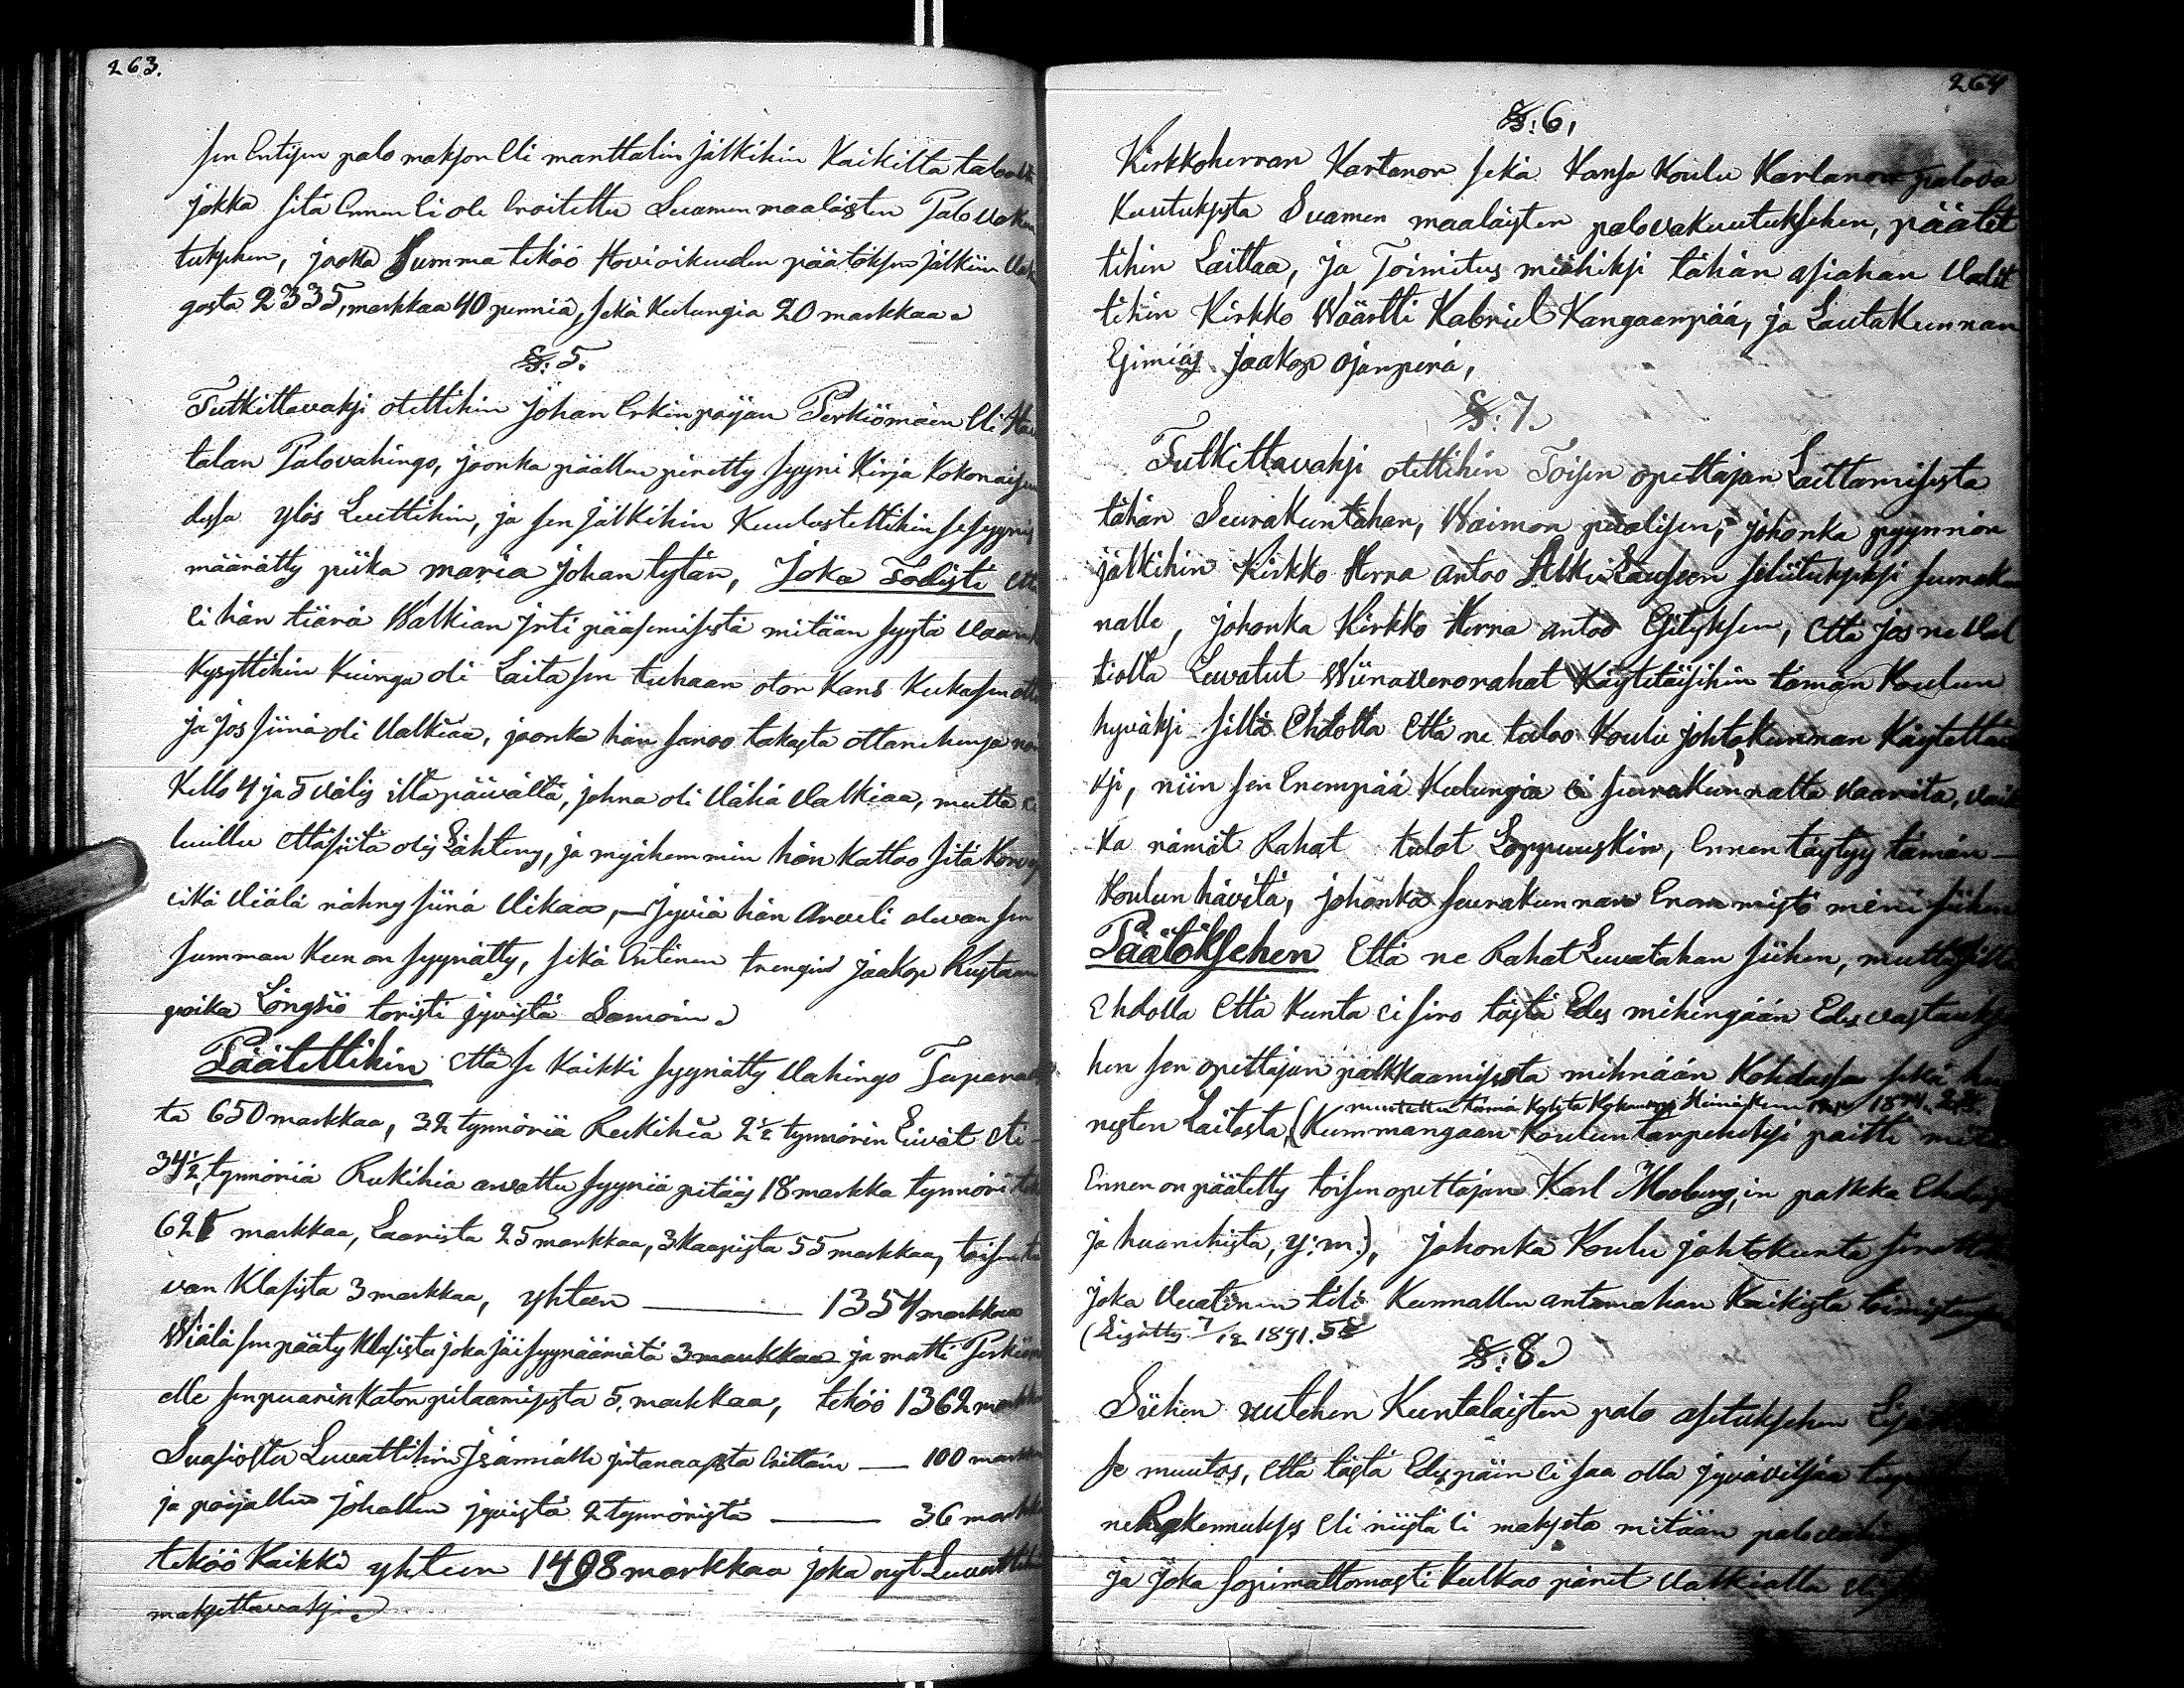 263.
sen Entisen palo makson Eli manttalin jälkihin Kaikilta taloilta
jokka sitä Ennen Ei ole Eroitettu Suamenmaalaisten Palo vakuu
tuksehen, joaka Summa teköö Hovioikeuden päätöksen jälkiin
gosta 2335, markkaa 40 penniä, sekä Kulungia 20 markkaa.
§: 5.
Tutkittavaksi otettihin Johan Erkinpoijan Perkiömäen Eli
talan Palovahingo, joonka päällen piretty syyni Kirja Kokonaisuu
desa ylös Luettihin, ja sen jälkihin Kuulustettihin se syynis
määrätty piika maria Johan tytän, Joka Todisti Että
Ei hän tiärä Walkian Jrti pääsemisestä mitään syytä
Kysyttihin Kuinga oli Laita sen tuhaan oton Kans Kuka sen otti
ja jos siinä oli Valkiaa, joonka hän sanoo takasta ottanehensa
Kello 4 ja 5 välis illtapäivältä, johna oli Vähä Valkiaa, mutta ei
luullu Että siitä olis Lähteny, ja myähemmin hän Kattoo sitä
eikä Viälä nähny siinä Vikaa, — Jyviä hän Arveeli olevan sen
summan Kun on syynätty, sekä Entinen trengin Jaakop Kustaan
poika Långsiö toristi jyvistä Samoin.
Päätettihin Että se Kaikki syynätty Vahingo Tuparas
ta 650 markkaa, 32 tynnöriä Rukihia 2½ tynnörin Eivät Eli
34½, tynnöriä Rukihia arvattu syyniä pitäis 18 markka tynnöri
621 markkaa, Laarista 25 markkaa, 3 kaapista 55 markkaa,
van Klasista 3 markkaa, yhteen — 1354 markkaa
Wiälä sen pääty Klasista joka jäi syynäämätä 3 markkaa ja matti Perkiöm
elle sen puarin Katon pilaamisesta 5. markkaa, teköö 1362 markkaa
Suasiosta Luvattihin Jsännälle jrtanaasta Erittäin — 100 markkaa
ja poijallen Johallen jyvistä 2 tynnöristä — 36 markkaa
teköö Kaikki yhteen 1498 markkaa joka nyt Luvattihin
maksettavaksi.
264
§: 6,
Kirkkoherran Kartanon sekä Kansa Koulu Kartanon palova
kuutuksesta Suamen maalaisten palovakuutuksehen, päätet
tihin Laittaa, ja Toimitus miähiksi tähän asiahan Valit
tihin Kirkko Wäärtti Kabriel Kangaanpää, ja Lautakunnan
Esimiäs Jaakop Ojanperä,
§: 7.
Tutkittavaksi otettihin Toisen opettajan Laittamisesta
tähän Seurakuntahan, Waimon puolisen, johonka pyynnön
jälkihin Kirkko Herra antoo Alku Lauseen selitykseksi seuraku
nalle, johonka Kirkko Herra antoo Esityksen, Että jos ne Val
tiolta Luvatut Wiinaverorahat Käytetäisihin tämän Koulun
hyväksi sillä Ehdolla Että ne tuloo Koulu johtokunnan Käytettävä
ksi, niin sen Enempää Kulungia Ei seurakunnalta vaarita, vaik
ka nämät Rahat tulot Loppuuskin, Ennen täytyy tämän
Koulun hävitä, johonka seurakunnan Enemmistö meni siihen
Päätöksehen Että ne Rahat Luvatahan siihen, mutta sillä
Ehdolla Että Kunta Ei siro tästä Edes mihingään Edesvastauksee
hen sen opettajan palkkaamisesta mihnään Kohdassa sekä
nesten Laitosta, (Kummangaan Koulun tarpeheksi paitti mitä
muutettu tämä Kohta Kokouxes Heinäkuu
Ennen on päätetty toisen opettajan Karl Moberg, in palkka Ehdosa
ja huanehista, y: m:), johonka Koulu johtokunta
joka Vuatinen tili Kunnallen antamahan Kaikista toimistansa
(Lisätty 7/12 1891. 5 §
§: 8.
Siihen uutehen Kuntalaisten palo asetuksehen
se muutos, Että tästä Edespäin Ei saa olla jyväviljaa
neh Rakennukses Eli niistä Ei makseta mitään palovahingo
ja joka sopimattomasti kulkoo päret Valkialla